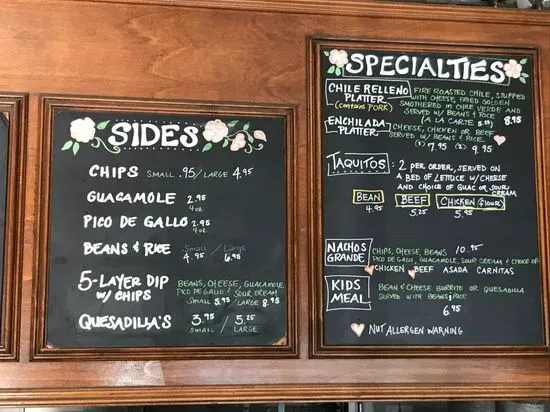 SIDES
CHIPS SMALL .95/LARGE 4.95
GUACAMOLE 2.95
4 oz.
PICO DE GALLO 2.95
4 oz.
BEANS & RICE Small 4.95 / Large 6.95
5-LAYER DIP BEANS, CHEESE, GUACAMOLE,
W/ CHIPS PICO DE GALLO & SOUR CREAM
SMALL 5.95 / LARGE 8.95
QUESADILLA'S 3.95 / 5.25
SMALL LARGE
SPECIALTIES
CHILE RELLENO FIRE ROASTED CHILE, STUFFED
PLATTER WITH CHEESE, FRIED GOLDEN
(contains PORK) SMOTHERED IN CHILE VERDE AND
SERVED W/ BEANS & RICE 8.95
(A LA CARTE 5.25)
ENCHILADA CHEESE, CHICKEN OR BEEF
PLATTER SERVED W/ BEANS & RICE.
(1) 7.95 (2) 9.95
TAQUITOS: 2 PER ORDER, SERVED ON
A BED OF LETTUCE W/ CHEESE
AND CHOICE OF GUAC OR SOUR
CREAM
BEAN BEEF CHICKEN (flour)
4.95 5.25 5.95
NACHOS CHIPS, CHEESE, BEANS 10.95
GRANDE PICO DE GALLO, GUACAMOLE, SOUR CREAM & CHOICE OF
CHICKEN BEEF ASADA CARNITAS
KIDS BEAN & CHEESE BURRITO OR QUESADILLA
MEAL SERVED WITH BEANS & RICE
6.95
NUT ALLERGEN WARNING